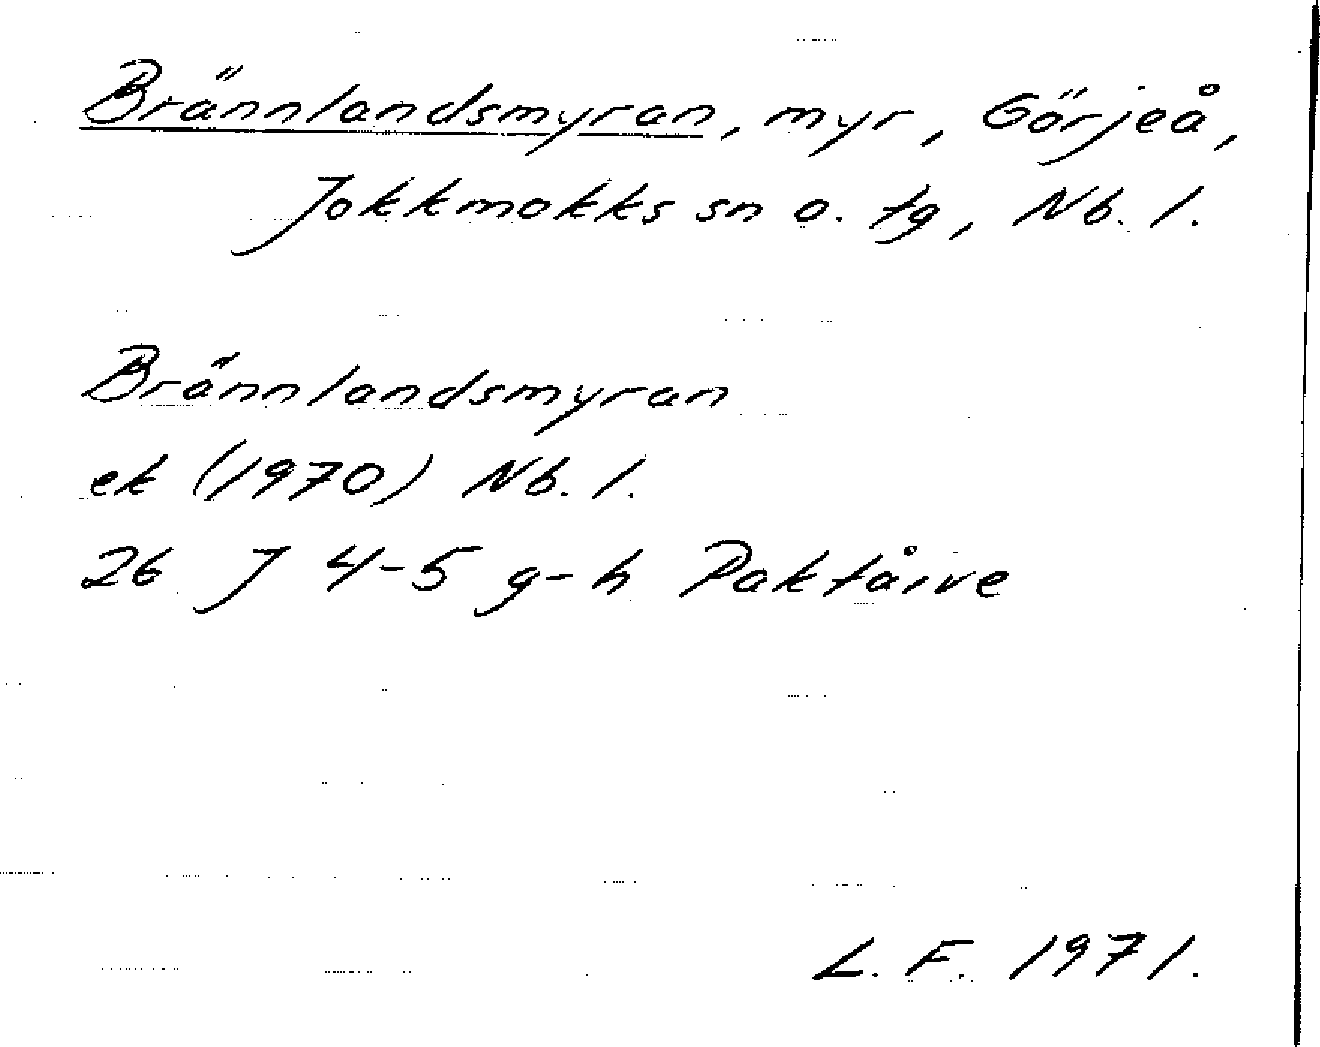 Brännlandsmyran, myr, Görjeå,
Jokkmokks sn o. tg, Nb. l.
Brännlandsmyran
ek (1970) Nb. l.
26 J 4-5 g-h Paktåive
L. F. 1971.